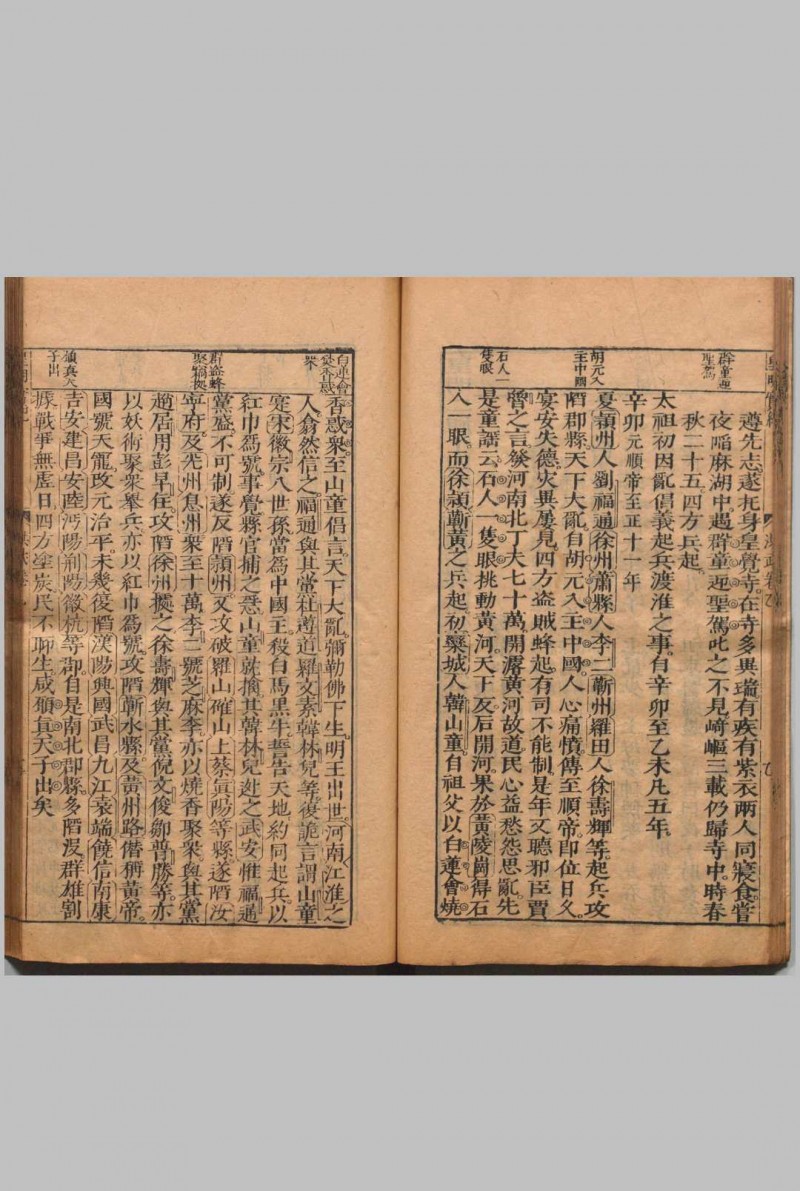 遵先志遂托身皇覺寺在寺多異瑞有疾有紫衣兩人同寢食嘗
夜陷麻湖中遇群童迎聖駕叱之不見崎嶇三載仍歸寺中時春
秋二十五四方兵起
太祖初因亂倡義起兵渡淮之事自辛卯至乙未凡五年
辛卯元順帝至正十一年
夏潁州人劉福通徐州蕭縣人李二蘄州羅田人徐壽輝等起兵攻
陷郡縣天下大亂自胡元入主中國人心痛憤傳至順帝即位日久
宴安失德災異屢見四方盜賊蜂起有司不能制是年又聽邪臣賈
魯之言發河南北丁夫七十萬開濬黃河故道民心益愁怨思亂先
是童謠云石人一隻眼挑動黃河天下反后開河果於黃陵崗得石
人一眼而徐潁蘄黃之兵起初欒城人韓山童自祖父以白蓮會燒
群童迎
聖駕
胡元入
主中國
石人一
隻眼
香惑衆至山童倡言天下大亂彌勒佛下生明王出世河南江淮之
人翕然信之福通與其黨杜遵道羅文素韓林兒等復詭言謂山童
寔宋徽宗八世孫當為中國主殺白馬黑牛誓告天地約同起兵以
紅巾為號事覺縣官捕之急山童就擒其韓林兒迯之武安惟福通
黨盛不可制遂反陷潁州又攻破羅山確山上蔡眞陽等縣遂陷汝
寧府及光州息州衆至十萬李二號芝麻李亦以燒香聚衆與其黨
趙君用彭早住攻陷徐州據之徐壽輝與其黨倪文俊鄒普勝等亦
以妖術聚衆舉兵亦以紅巾為號攻陷蘄水縣及黃州路僭稱黃帝
國號天寵改元治平未幾復陷漢陽興國武昌九江袁端饒信南康
吉安建昌安陸沔陽荊陽徽杭等郡自是南北郡縣多陷沒群雄割
據戰爭無虛日四方塗炭民不聊生咸願真天子出矣
白蓮會
燒香惑
衆
群盜蜂
聚蝟拠
願真天
子出